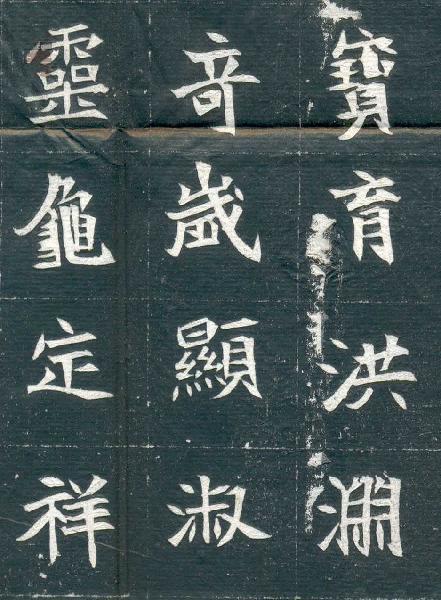 寶育洪淵
竒歲顯淑
靈龜定祥